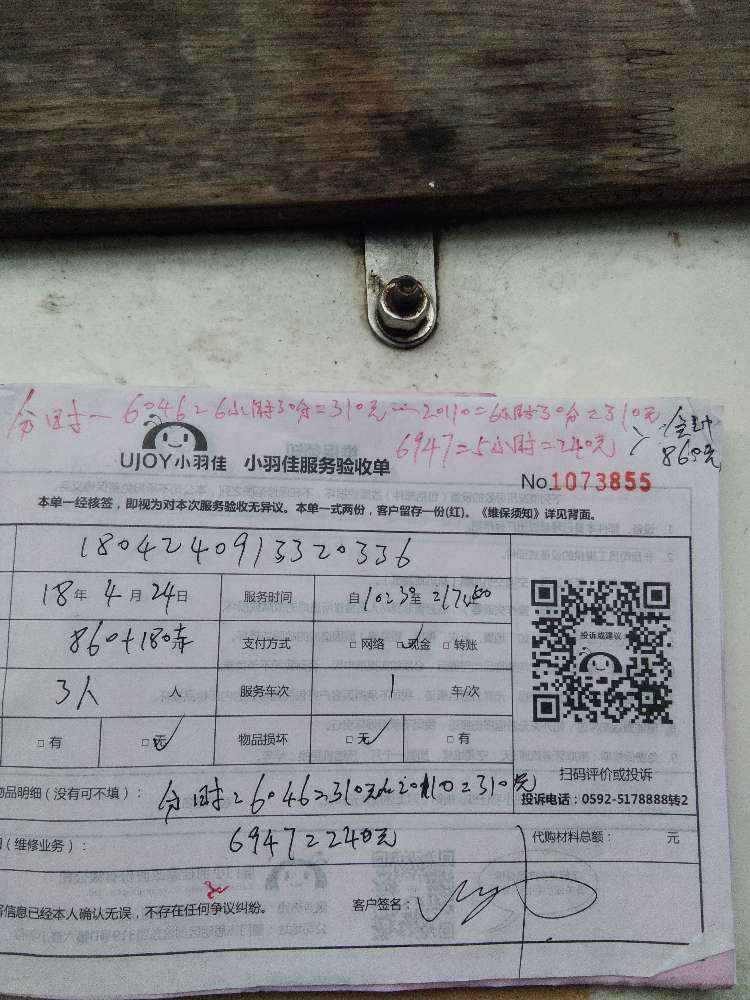 分时一6046=6小时30分=310元一20110=6小时30分=310元
6947=5小时=240元>合计
860元
UJOY小羽佳 小羽佳服务验收单
No1073855
本单一经核签，即视为对本次服务验收无异议。本单一式两份，客户留存一份(红)。《维保须知》详见背面。
1804240913320336
18年4月24日 服务时间 自1023º至
860+180 支付方式 □网络 □现金 □转账
投诉或建议
3人 人 服务车次 1 车/次
□有 □无 物品损坏 □无 □有
扫码评价或投诉
品明细（没有可不填）： 分时=6046=310元 20110=310元
投诉电话：0592-5178888转2
（维修业务）： 6947=240元 代购材料总额： 元
信息已经本人确认无误，不存在任何争议纠纷。 客户签名：